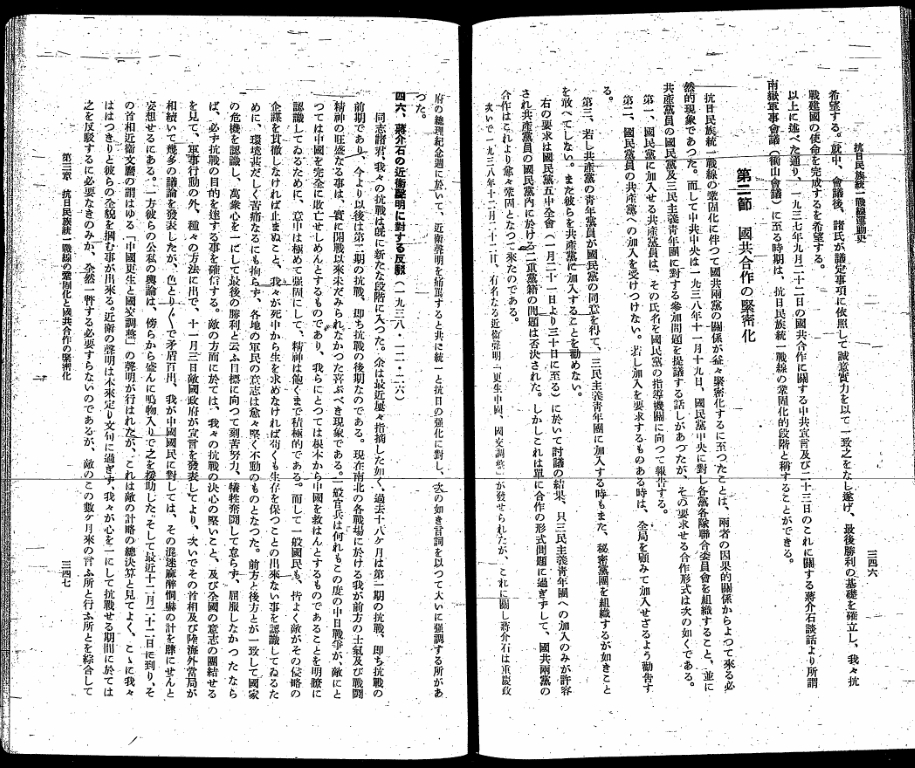 抗日民族統一戰線運動史
三四六
希望する。就中、會議後、諸氏が議定事項に依照して誠意實力を以て一致之をなし遂げ、最後勝利の基礎を確立し、我々抗
戰建國の使命を完成するを希望する。
以上に述べた通り、一九三七年九月二十二日の國共合作に關する中共宣言及び二十三日のこれに關する蔣介石談話より所謂
南嶽軍事會議（衡山會議）に至る時期は、抗日民族統一戰線の鞏固化的段階と稱することができる。
第二節 國共合作の緊密化
抗日民族統一戰線の鞏固化に伴つて國共兩黨の關係が益々緊密化するに至つたことは、兩者の因果的關係からよつて來る必
然的現象であつた。而して中共中央は一九三八年十一月十九日、國民黨中央に對し各黨各隊聯合委員會を組織すること、並に
共產黨員の國民黨及三民主義青年團に對する參加問題を提議する話しがあつたが、その要求せる合作形式は次の如くである。
第一、國民黨に加入せる共產黨員は、その氏名を國民黨の指導機關に向つて報告する。
第二、國民黨員の共產黨への加入を受けつけない。若し加入を要求するものある時は、全局を顧みて加入せざるよう勸告す
る。
第三、若し共產黨の青年黨員が國民黨の同意を得て、三民主義青年團に加入する時もまた、秘密黨團を組織するが如きこと
を敢へてしない。また彼らを共產黨に加入することを勸めない。
右の要求は國民黨五中全會（一月二十一日より三十日に至る）に於いて討議の結果、只三民主義青年團への加入のみが許容
され共產黨員の國民黨內に於ける二重黨籍の問題は否決された。しかしこれは單に合作の形式問題に過ぎずして、國共兩黨の
合作はこれより愈々鞏固となつて來たのである。
次いで一九三八年十二月二十二日、有名なる近衞聲明「更生中國、國交調整」が發せられたが、これに關し蔣介石は重慶政
府の總理紀念週に於いて、近衞聲明を痛罵すると共に統一と抗日の强化に對し、次の如き言詞を以つて大いに强調する所があ
つた。
四六、蔣介石の近衞聲明に對する反駁（一九三八・一二・二六）
同志諸君 我々の抗戰は旣に新たな段階に入つた。余は最近屢々指摘した如く、過去十八ケ月は第一期の抗戰、卽ち抗戰の
前期であり、今より以後は第二期の抗戰、卽ち抗戰の後期なのである。現在南北の各戰場に於ける我が前方の士氣及び戰鬪
精神の旺盛なる事は、實に開戰以來未だみられなかつた喜ぶべき現象である。一般官兵は何れもこの度の中日戰爭が、敵にと
つては中國を完全に敗亡せしめんとするものであり、我らにとつては根本から中國を救はんとするものであることを明瞭に
認識してゐるために、意中は極めて强固にして、精神は飽くまで積極的である。而して一般國民も、皆よく敵がその侵略の
企謀を貫徹しなければ止まぬこと、我々が死中から生を求めなければ苟くも生存を保つことの出來ない事を認識してゐるた
めに、環境甚だしく苦痛なるにも拘らず、各地の軍民の意志は愈々堅く不動のものとなつた。前方と後方とが一致して國家
の危機を認識し、萬衆心を一にして最後の勝利と云ふ目標に向つて刻苦努力、犧牲奮鬪して怠らず、屈服しなかつたなら
ば、必ず抗戰の目的を達する事を確信する。敵の方面に於ては、我々の抗戰の決心の堅いこと、及び全國の意志の團結せる
を見て、軍事行動の外、種々の方法に出で、十一月三日敵國政府が宣言を發表してより、次いでその首相及び陸海外當局が
相續いて幾多の議論を發表したが、色とり〲で矛盾百出、我が中國國民に對しては、その混迷麻醉恫嚇の計を肆にせんと
妄想せるにある。一方彼らの公私の輿論は、傍らから盛んに鳴物入りで之を援助した。そして最近十二月二十二日に到り、そ
の首相近衞文麿の謂はゆる「中國更生と國交調整」の聲明が行はれたが、これは敵の計略の總決算と見てよく、こゝに我々
ははつきりと彼らの全貌を摑む事が出來る。近衞の聲明は本來定り文句に過ぎず、我々が心を一にして抗戰せる期間に於ては
之を反駁するに必要なきのみか、全然一瞥する必要すらないのであるが、敵のこの數ケ月來の言ふ所と行ふ所とを綜合して
第三章 抗日民族統一戰線の鞏固化と國共合作の緊密化
三四七